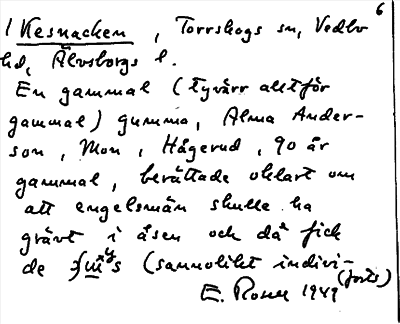 6
/ Kesnacken, Torrskogs sn, Vedbo
hd, Älvsborgs l.
En gammal (tyvärr alltför
gammal) gumma, Alma Ander-
son, Mon, Hågerud, 90 år
gammal, berättade oklart om
att engelsmän skulle ha
grävt i åsen och då fick
de (sannolikt indivi-
(forts)
E. 1949